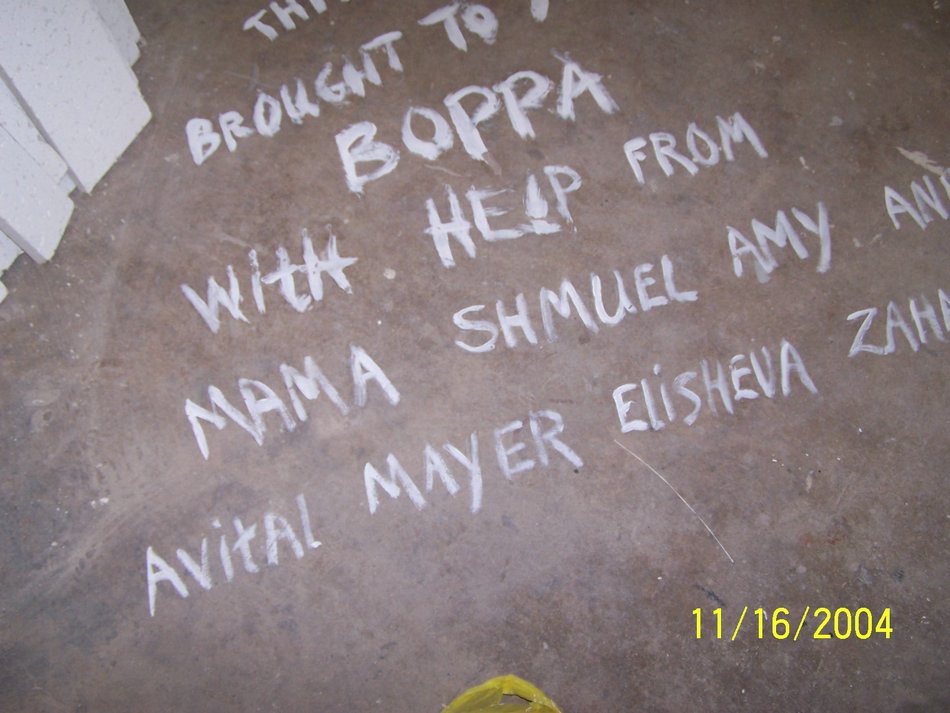 BROUGHT TO
BOPPA
WITH HELP FROM
MAMA SHMUEL AMY
AVITAL MAYER ELISHEVA
11/16/2004